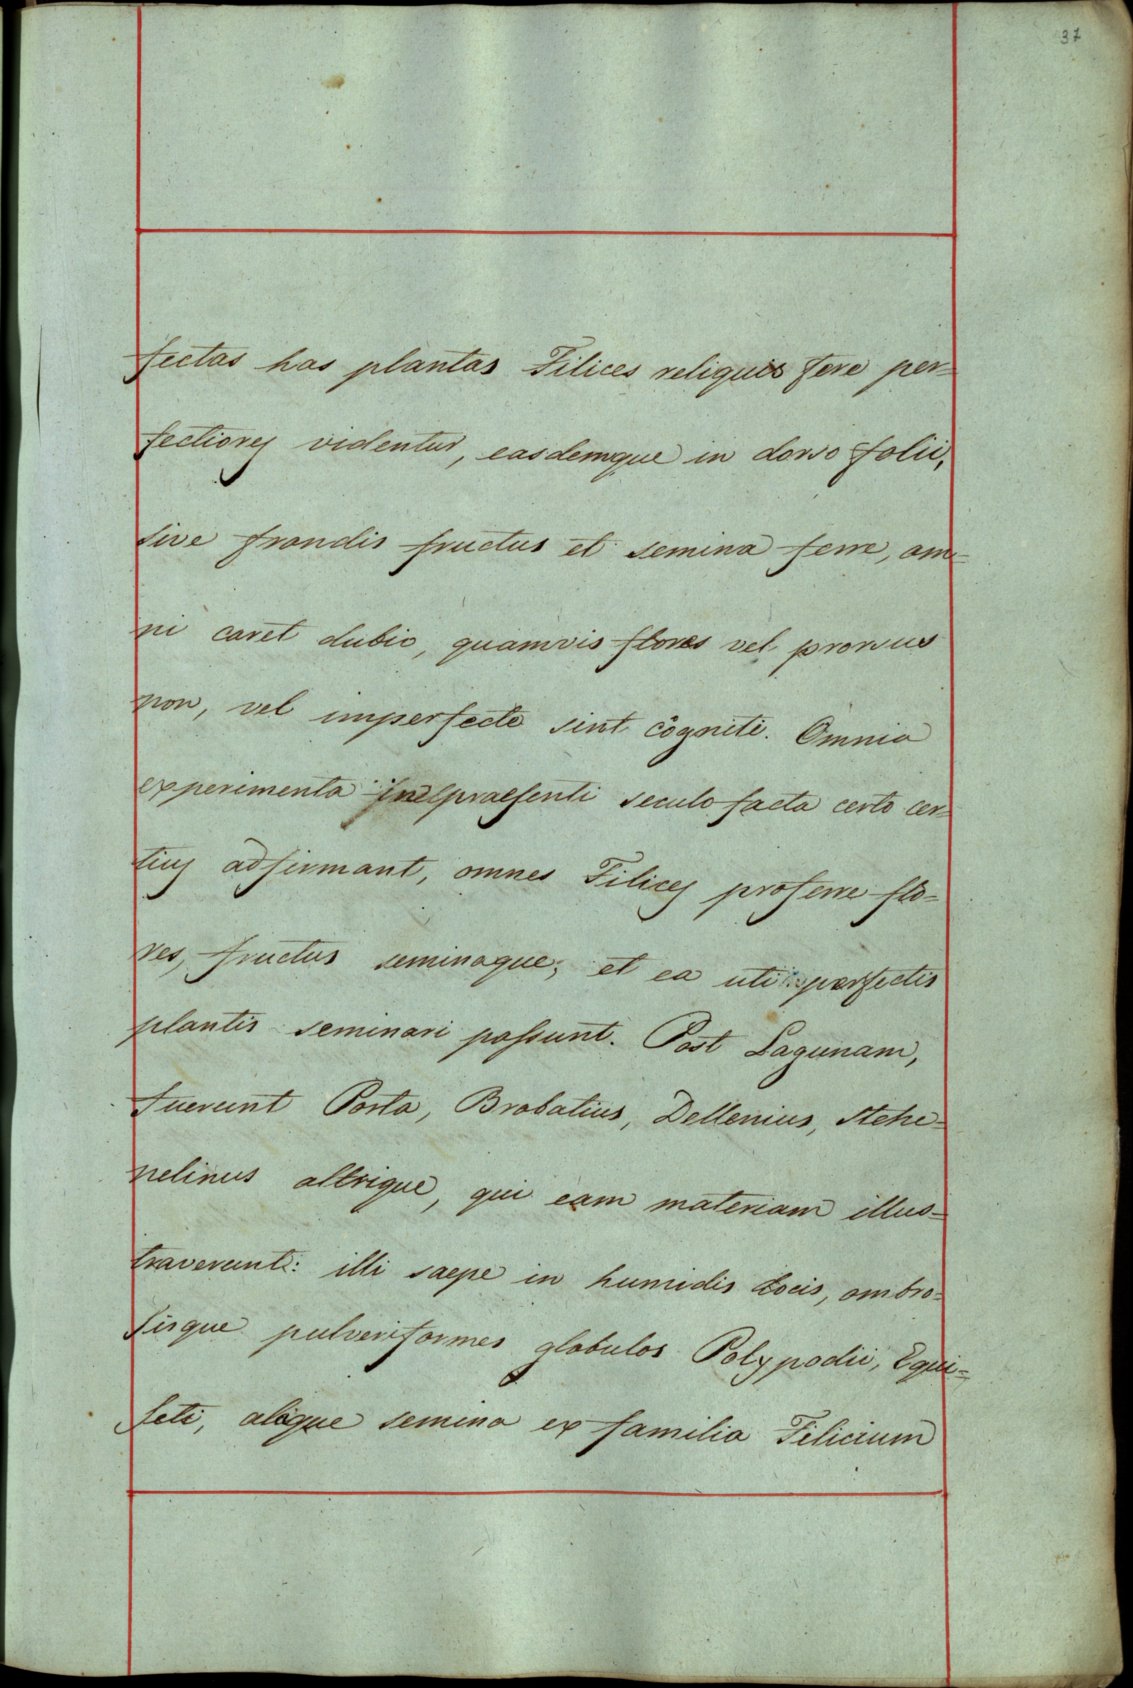 37
fectas has plantas Filices reliquis fere per=
fectiores videntur, easdemque in dorso folii,
sive frondis fructus et semina ferre, om=
ni caret dubio, quamvis flores vel prorsus
non, vel imperfecte sint cogniti. Omnia
experimenta praesenti seculo facta certo cer=
tius adfirmant, omnes Filices proferre flo=
res, fructus seminaque; et ea uti perfectis
plantis seminari possunt. Post Lagunam,
fuerunt Porta, Brobatius, Dellenius, Stehe=
nelinus aliique, qui eam materiam illus=
traverunt: illi saepe in humidis locis, ombro=
sisque pulveriformes globulos Polypodii, Equi=
seti, alique semina ex familia Filicium